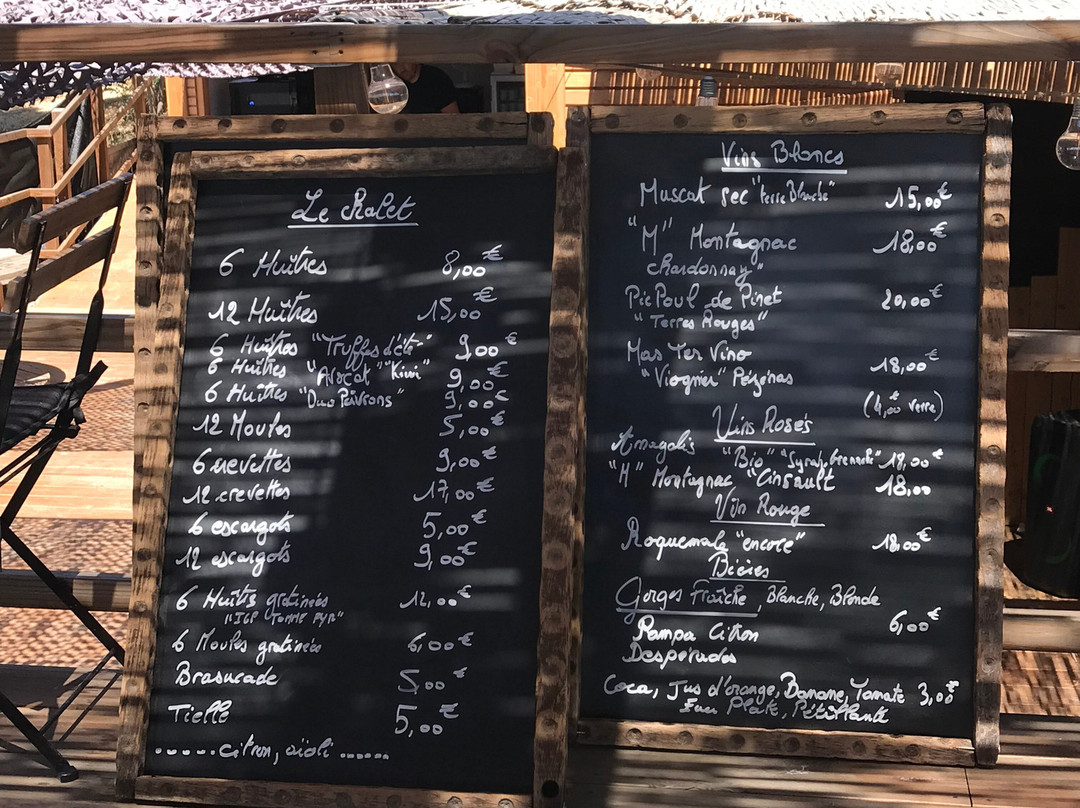 Le Chalet
6 Huîtres 8,00€
12 Huîtres 15,00€
6 Huîtres "Truffes d'été" 9,00€
6 Huîtres "Avocat" "Kiwi" 9,00€
6 Huîtres "Duo Poivrons" 9,00€
12 Moules 5,00€
6 crevettes 9,00€
12 crevettes 17,00€
6 escargots 5,00€
12 escargots 9,00€
6 Huîtres gratinées 12,00€
"IGP TOMME PYR"
6 Moules gratinées 6,00€
Brasucade 5,00€
Tielle 5,00€
......citron, aïoli ......
Vins Blancs
Muscat sec "terre Blanche" 15,00€
"M" Montagnac 18,00€
chardonnay"
PicPoul de Pinet 20,00€
"Terres Rouges"
Mas Ter Vino 18,00€
"Viognier" Pézénas
(4,00€ verre)
Vins Rosés
Amegalis "Bio" "Syrah, Grenache" 18,00€
"M" Montagnac "Cinsault 18,00
Vin Rouge
Roquemale "encore" 18,00€
Bières
Gorges Fraîche, Blanche, Blonde
6,00€
Pampa Citron
Desperados
Coca, Jus d'orange, Banane, Tomate 3,00€
Eau Plate, Pétillante